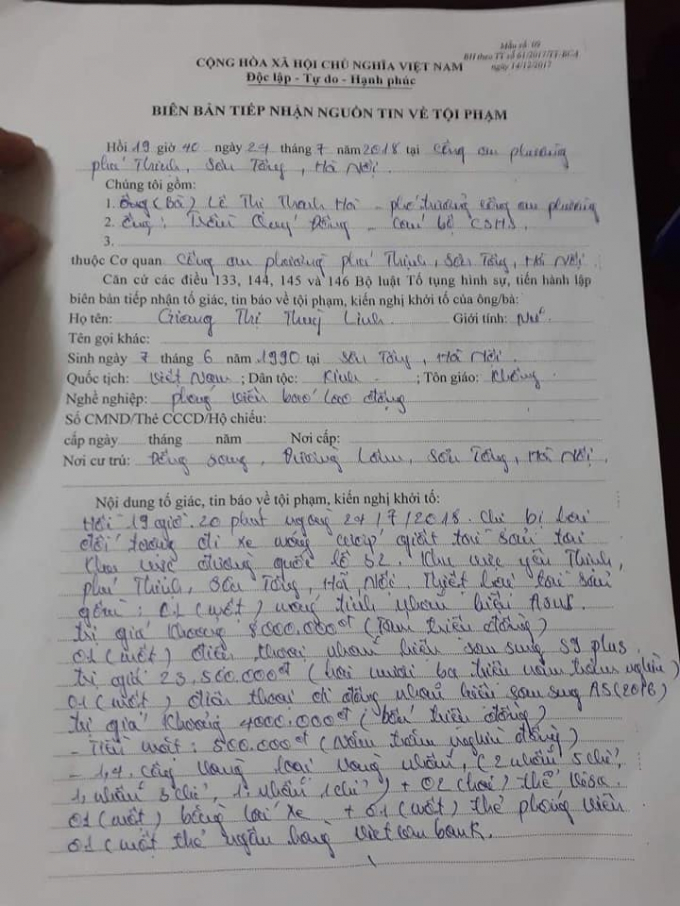 Mẫu số: 03
BH theo TT số 61/2017/TT-BCA
ngày 14/12/2017
CỘNG HÒA XÃ HỘI CHỦ NGHĨA VIỆT NAM
Độc lập - Tự do - Hạnh phúc
BIÊN BẢN TIẾP NHẬN NGUỒN TIN VỀ TỘI PHẠM
Hồi 19 giờ 40 ngày 24 tháng 7 năm 2018 tại Công an phường
phú Thịnh, Sơn Tây, Hà Nội
Chúng tôi gồm:
1. Ông (Bà) Lê Thị Thanh Hà - phó trưởng công an phường
2. Ông: Trần Quý Đông - Cán bộ CSHS
3.
thuộc Cơ quan Công an phường phú Thịnh, Sơn Tây, Hà Nội
Căn cứ các điều 133, 144, 145 và 146 Bộ luật Tố tụng hình sự, tiến hành lập
biên bản tiếp nhận tố giác, tin báo về tội phạm, kiến nghị khởi tố của ông/bà:
Họ tên: Giang Thị Thuỳ Linh Giới tính: Nữ
Tên gọi khác:
Sinh ngày 7 tháng 6 năm 1990 tại Sơn Tây, Hà Nội
Quốc tịch: Việt Nam ; Dân tộc: Kinh ; Tôn giáo: Không
Nghề nghiệp: phóng viên báo lao động
Số CMND/Thẻ CCCD/Hộ chiếu:
cấp ngày tháng năm Nơi cấp:
Nơi cư trú: Đông Sàng, Đường Lâm, Sơn Tây, Hà Nội
Nội dung tố giác, tin báo về tội phạm, kiến nghị khởi tố:
Hồi 19 giờ 20 phút ngày 24/7/2018. Chị bị hai
đối tượng đi xe máy cướp giật tài sản tại
khu vực đường quốc lộ 32. Khu vực yên Thịnh,
phú Thịnh, Sơn Tây, Hà Nội. Thiệt hại tài sản
gồm: 01 (một) máy tính nhãn hiệu Asus
trị giá khoảng 8000.000đ (tám triệu đồng)
01 (một) điện thoại nhãn hiệu Sam sung S9 plus
trị giá 23.500.000đ (hai mươi ba triệu năm trăm nghìn)
01 (một) điện thoại di động nhãn hiệu Samsung A5 (2016)
trị giá khoảng 4000.000đ (bốn triệu đồng)
- Tiền mặt: 500.000đ (Năm trăm nghìn đồng)
- 1,4 cây vàng loại vàng nhẫn, (2 nhẫn 5 chỉ,
1 nhẫn 3 chỉ, 1 nhẫn 1 chỉ) + 02 (hai) thẻ Visa
01 (một) bằng lái xe + 01 (một) thẻ phóng viên
01 (một thẻ ngân hàng Vietcombank.